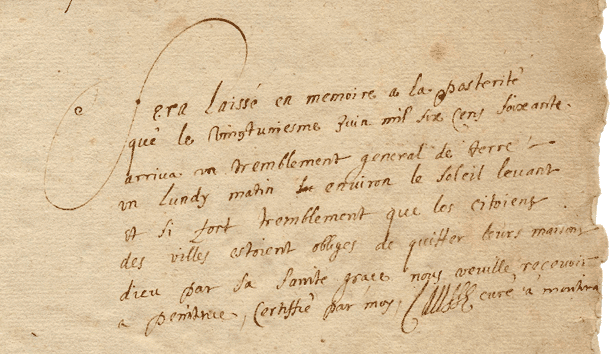 Sera laissé en memoire a la posterité
que le vingtuniesme Juin mil six cens soixante
arriva un tremblement general de terre
un Lundy matin environ le soleil levant
et si fort tremblement que les citoiens
des villes estoient obliges de quitter leurs maisons
dieu par sa sainte grace nous veuille recevoir
a penitence, Certiffié par moy, curé a